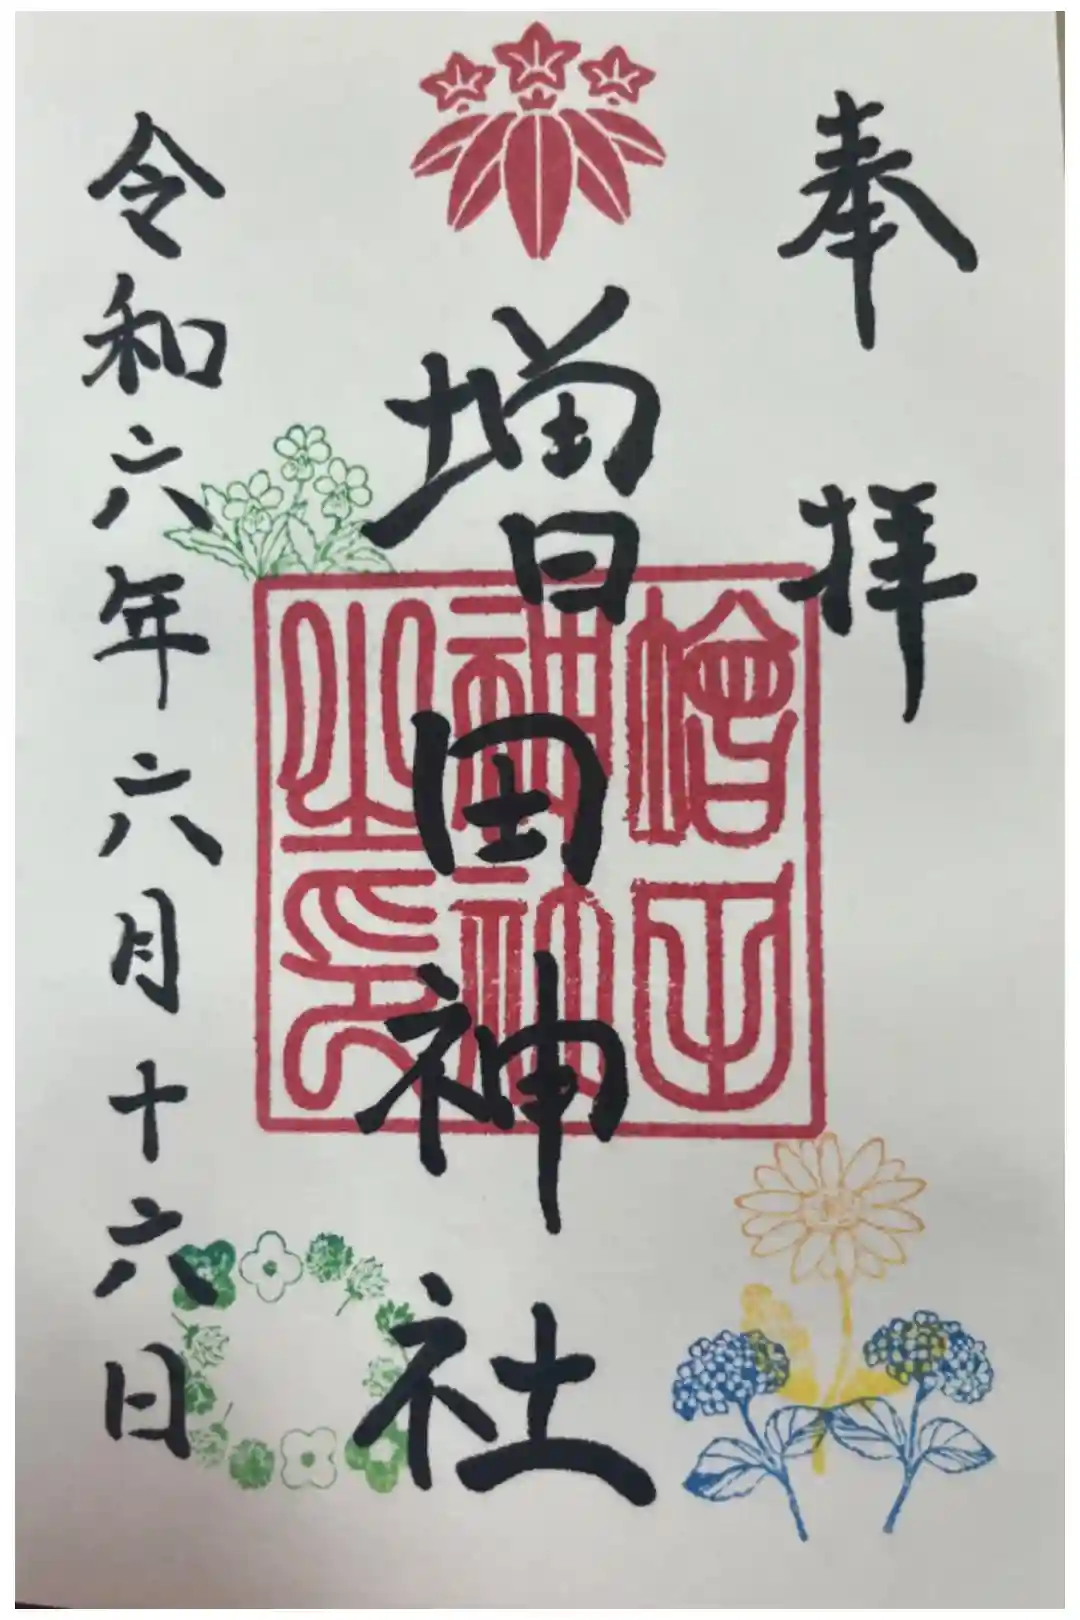 奉拝
増田神社
増田神社之印
令和六年六月十六日